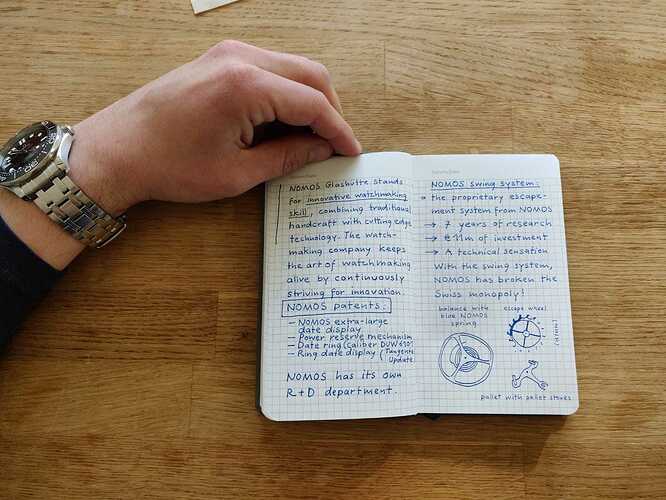 NOMOS Glashütte stands
for innovative watchmaking
skill, combining traditional
handcraft with cutting edge
technology. The watch-
making company keeps
the art of watchmaking
alive by continuously
striving for innovation.
NOMOS patents:
— NOMOS extra-large
date display
— Power reserve mechanism
— Date ring (Caliber DUW 6101
— Ring date display (Tangente
Update
NOMOS has its own
R+D department.
NOMOS swing system:
the proprietary escape-
ment system from NOMOS
→ 7 years of research
→ €11m of investment
→ A technical sensation
With the swing system,
NOMOS has broken the
Swiss monopoly!
balance with
blue NOMOS
spring
escape wheel
pallet with pallet stones